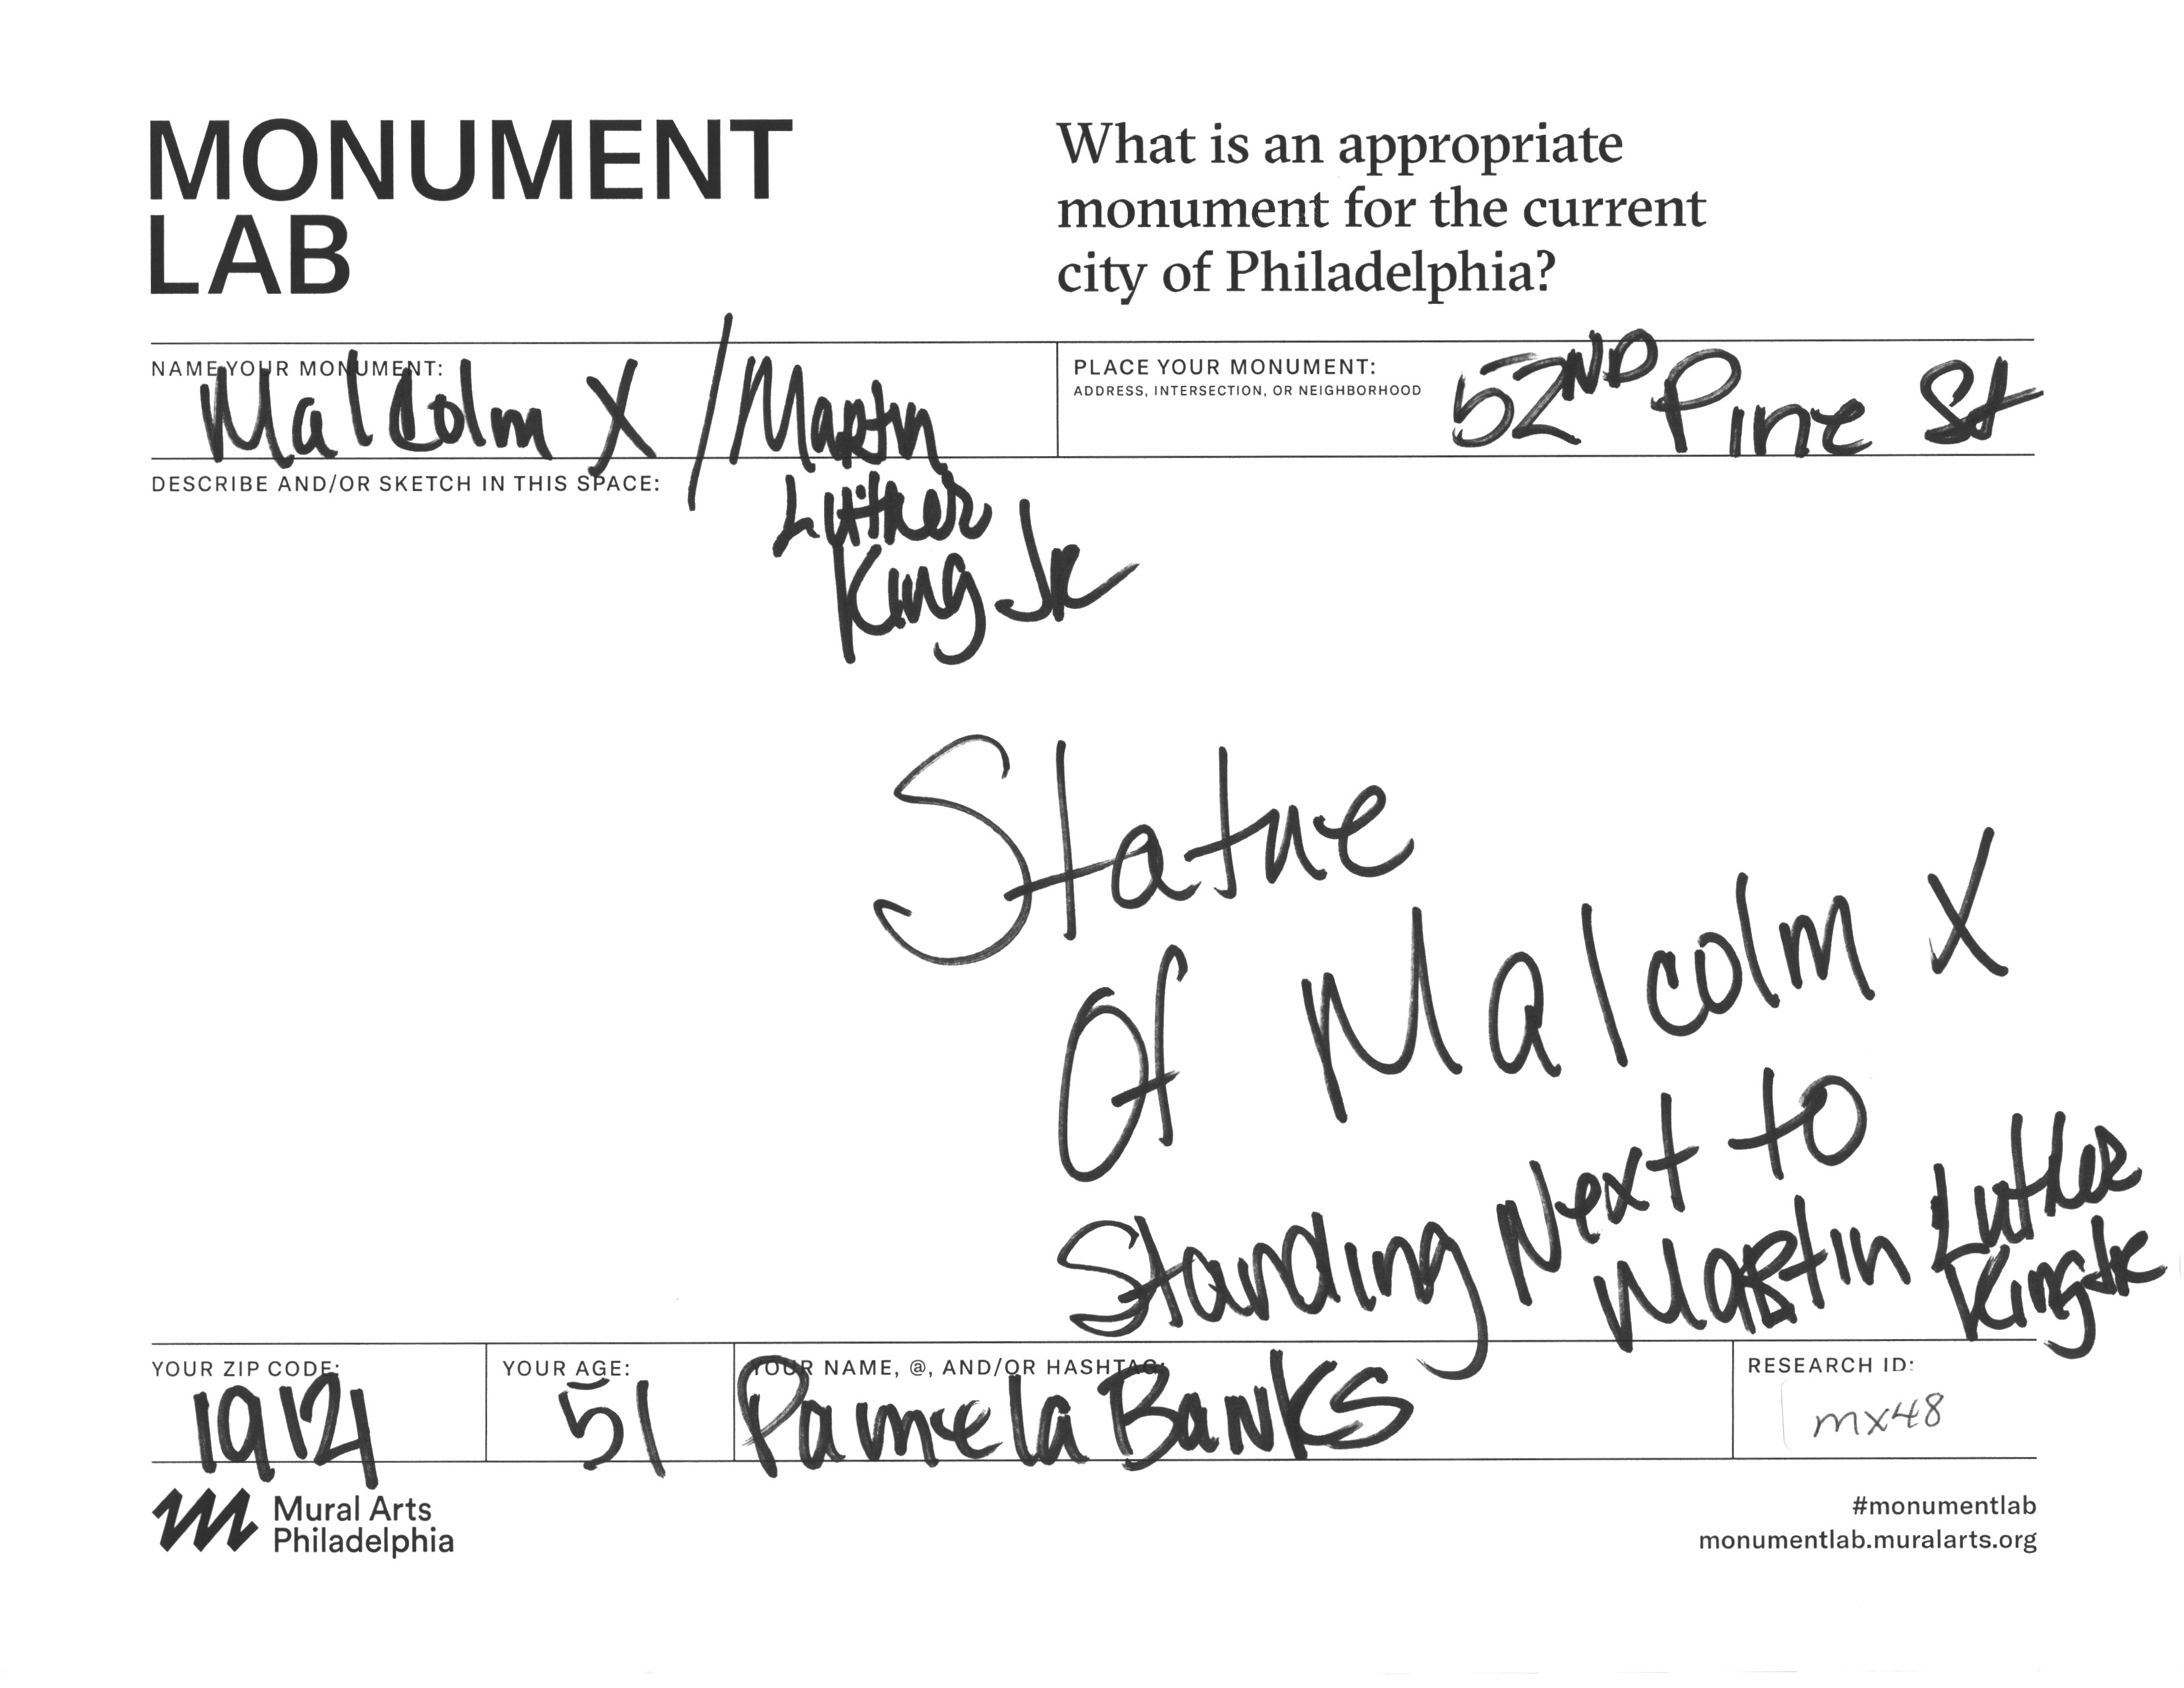 MONUMENT
LAB
What is an appropriate
monument for the current
city of Philadelphia?
NAME YOUR MONUMENT:
Malcolm X / Martin
Luther
King JR
PLACE YOUR MONUMENT:
ADDRESS, INTERSECTION, OR NEIGHBORHOOD
52ND Pine St
DESCRIBE AND/OR SKETCH IN THIS SPACE:
Statue
Of Malcolm X
Standing Next to
Martin Luther
King JR
YOUR ZIP CODE:
19124
YOUR AGE:
51
YOUR NAME, @, AND/OR HASHTAG:
Pamela Banks
RESEARCH ID:
mx48
Mural Arts
Philadelphia
#monumentlab
monumentlab.muralarts.org